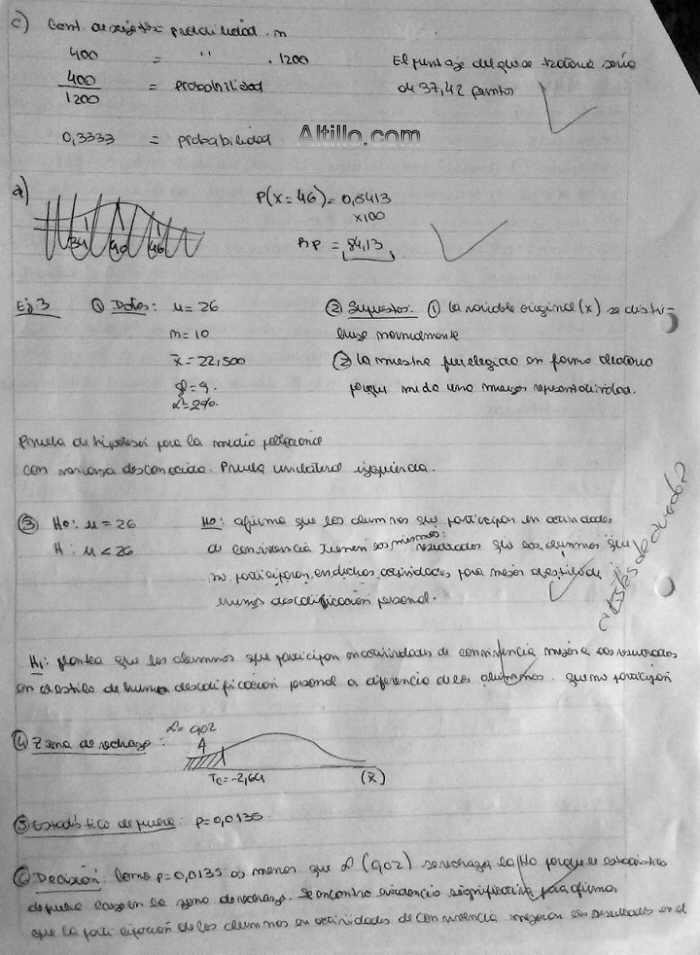 c) Cant. de sujetos = probabilidad . n
400 = " . 1200
400/1200 = probabilidad
0,3333 = probabilidad
El puntaje del que se trataria seria
de 37,42 puntos
Altillo.com
a)
34 40 46
P(X=46) = 0,8413
x100
RP = 84,13
Ej 3 ① Datos: u = 26
n = 10
x̄ = 22,500
gl = 9.
α = 2%.
② Supuestos: ① la variable original (x) se distri-
buye normalmente
② la muestra fue elegida en forma aleatoria
porque mide una mayor representatividad.
Prueba de hipotesis para la media poblacional
con varianza desconocida. Prueba unilateral izquierda.
③ Ho: u = 26
H: u < 26
Ho: afirma que los alumnos que participan en actividades
de convivencia tienen los mismos resultados que los alumnos que
no participaron en dichas actividades para mejor el estilo de
humor descalificación personal.
H1: plantea que los alumnos que participan en actividades de convivencia mejora los resultados
en el estilo de humor descalificación personal a diferencia de los alumnos que no participan
④ Zona de rechazo:
α = 0,02
Tc = -2,64
(x̄)
⑤ Estadístico de prueba: p = 0,0135
⑥ Decisión: Como p = 0,0135 es menor que α (0,02) se rechaza la Ho porque el estadístico
de prueba cae en la zona de rechazo. Se encontro evidencia significativa para afirmar
que la participación de los alumnos en actividades de convivencia mejoran los resultados en el